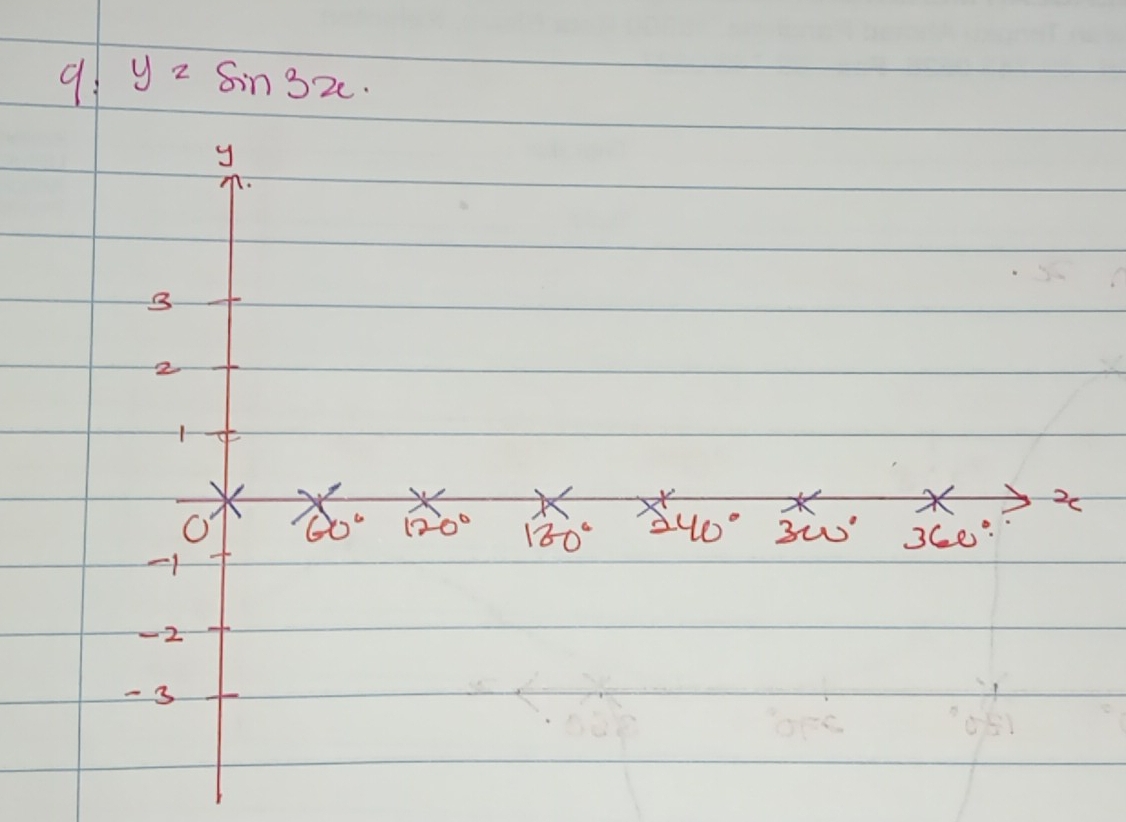 9. y = Sin 3x.
y
3
2
1
x
0 60° 120° 180° 240° 300° 360°
-1
-2
-3